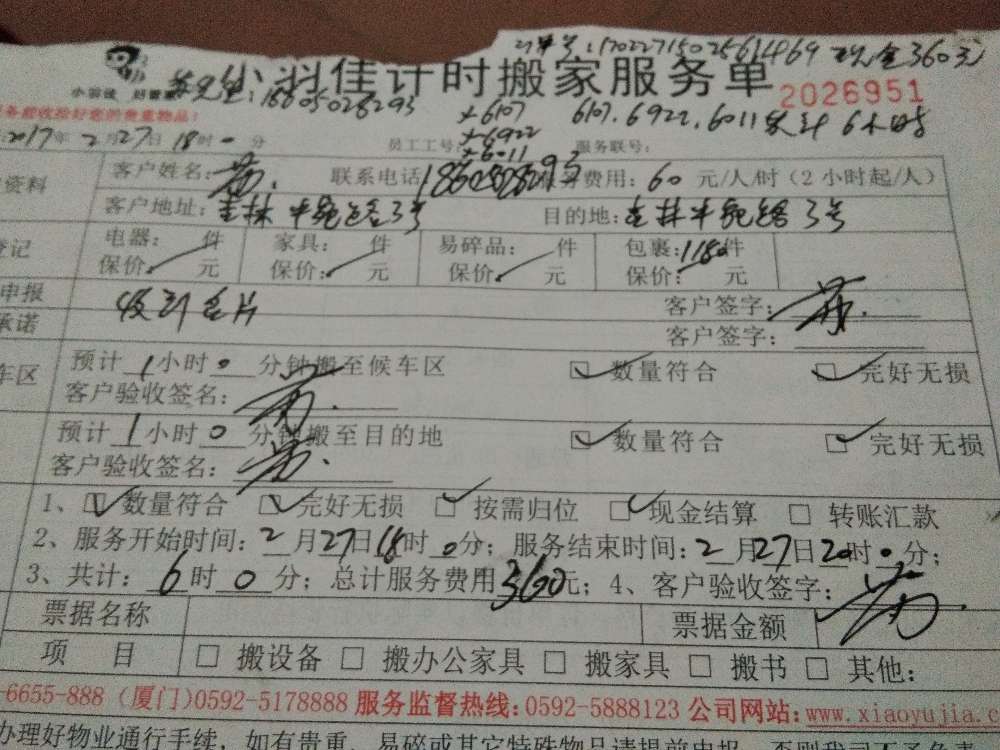 订单号:1702271502561469 现金360元
小羽佳 好管家
小羽佳计时搬家服务单
2026951
:18605028293
6107
6107.6922.6011 共计 6小时
务前验收捡好您的贵重物品!
6922
6011
2017年 2月27日 18时0分 员工工号: 服务联号:
资料 客户姓名:苏. 联系电话 服务费用: 60 元/人/时(2小时起/人)
客户地址: 3号 目的地: 3号
登记 电器: 件 家具: 件 易碎品: 件 包裹: 件
保价: 元 保价: 元 保价: 元 保价: 元
申报 客户签字: 苏.
承诺 收到名片 客户签字:
车区 预计 1小时 0 分钟搬至候车区 数量符合 完好无损
客户验收签名: 苏.
预计 1小时 0 分钟搬至目的地 数量符合 完好无损
客户验收签名: 苏.
1、 数量符合 完好无损 按需归位 现金结算 转账汇款
2、服务开始时间: 2月27日18时0分; 服务结束时间: 2月27日20时0分;
3、共计: 6时 0分; 总计服务费用360元; 4、客户验收签字: 苏.
票据名称 票据金额
项 目 搬设备 搬办公家具 搬家具 搬书 其他:
-6655-888 (厦门)0592-5178888 服务监督热线:0592-5888123 公司网站:www.xiaoyujia.c
办理好物业通行手续,如有贵重、易碎或其它特殊物品请提前申报,否则我司